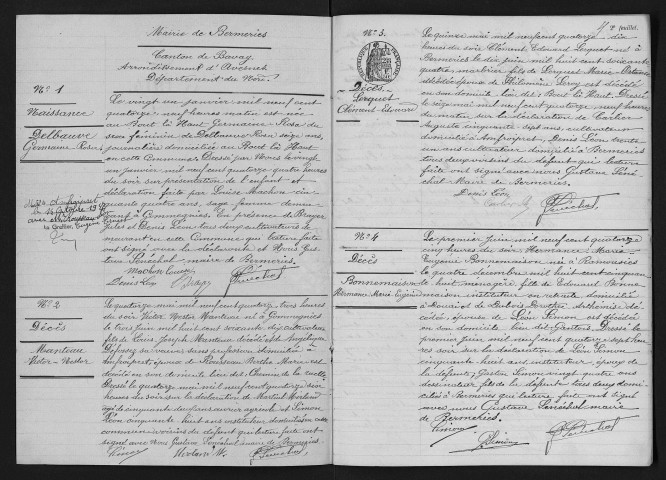 Mairie de Bermeries
Canton de Bavay
Arrondissement d'Avesnes
Département du Nord
N° 1
Naissance
Delbauve
Germaine Rose
Le vingt un janvier mil neuf cent
quatorze neuf heures matin est née
au Bout là Haut Germaine Rose du
sexe féminin de Delbauve Rose seize ans,
journalière domiciliée au Bout là Haut
en cette Commune Dressé par Nous le vingt
un janvier mil neuf cent quatorze quatre heures
du soir sur présentation de l'enfant et
déclaration faite par Louise Machon cin
quante quatre ans, sage femme demeu
rant à Gommegnies. En présence de
Jules et Denis Léon tous deux cultivateurs de
meurant en cette Commune qui lecture faite ont
signé avec la déclarante et Nous Gus
tave Sénéchal maire de Bermeries.
Machon Louise
Denis Léon
Sénéchal
N° 2
Décès
Manteau
Victor Nestor
Le quatorze mai mil neuf cent quatorze trois heures
du soir Victor Nestor Manteau né à Gommegnies
le trois juin mil huit cent soixante dix cultivateur
fils de Louis Joseph Manteau décédé et de Angélique
sa veuve sans profession domiciliée à
Amfroipret époux de Rousseau Bertha Maria est dé
cédé en son domicile lieu dit Chemin de la ruelle
Dressé le quatorze mai mil neuf cent quatorze six
heures du soir sur la déclaration de
cinquante deux ans ouvrier agricole et Simon
Léon cinquante huit ans instituteur domiciliés en cette
commune voisins du défunt qui lecture faite ont
signé avec Nous Gustave Sénéchal maire de Bermeries
Simon
Sénéchal
2e feuillet
N° 3.
Décès
Lerquet
Clément Edouard
Le quinze mai mil neuf cent quatorze dix
heures du soir Clément Edouard Lerquet né à
Bermeries le dix juin mil huit cent soixante
quatre, marbrier fils de Lerquet Marie
décédé époux de Philomène Leroy est décédé
en son domicile lieu dit Bout là Haut Dressé
le seize mai mil neuf cent quatorze neuf heures
du matin sur la déclaration de
Auguste cinquante sept ans cultivateur
domicilié à Amfroipret, Denis Léon trente
un ans cultivateur domicilié à Bermeries
tous deux voisins du défunt qui lecture
faite ont signé avec nous Gustave Séné
chal Maire de Bermeries.
Denis Léon
Sénéchal
N° 4
Décès
Bonnemaison
Hermance Marie Eugénie
Le premier Juin mil neuf cent quatorze
cinq heures du soir Hermance Marie
Eugénie Bonnemaison né à Ramousies
le quatre décembre mil huit cent cinquan
te huit ménagère fille de Edouard Bonne
maison instituteur en retraite domicilié
à Mouriez et Dubois Dorothée
cédée, épouse de Léon Simon est décédée
en son domicile lieu dit Dressé le
premier juin mil neuf cent quatorze sept heu
res soir sur la déclaration de Léon Simon
cinquante huit ans instituteur époux de
la défunte, Gaston Simon vingt quatre ans
dessinateur fils de la défunte tous deux domici
liés à Bermeries qui lecture faite ont signé
avec nous Gustave Sénéchal maire
de Bermeries.
Simon
G Simon
Sénéchal